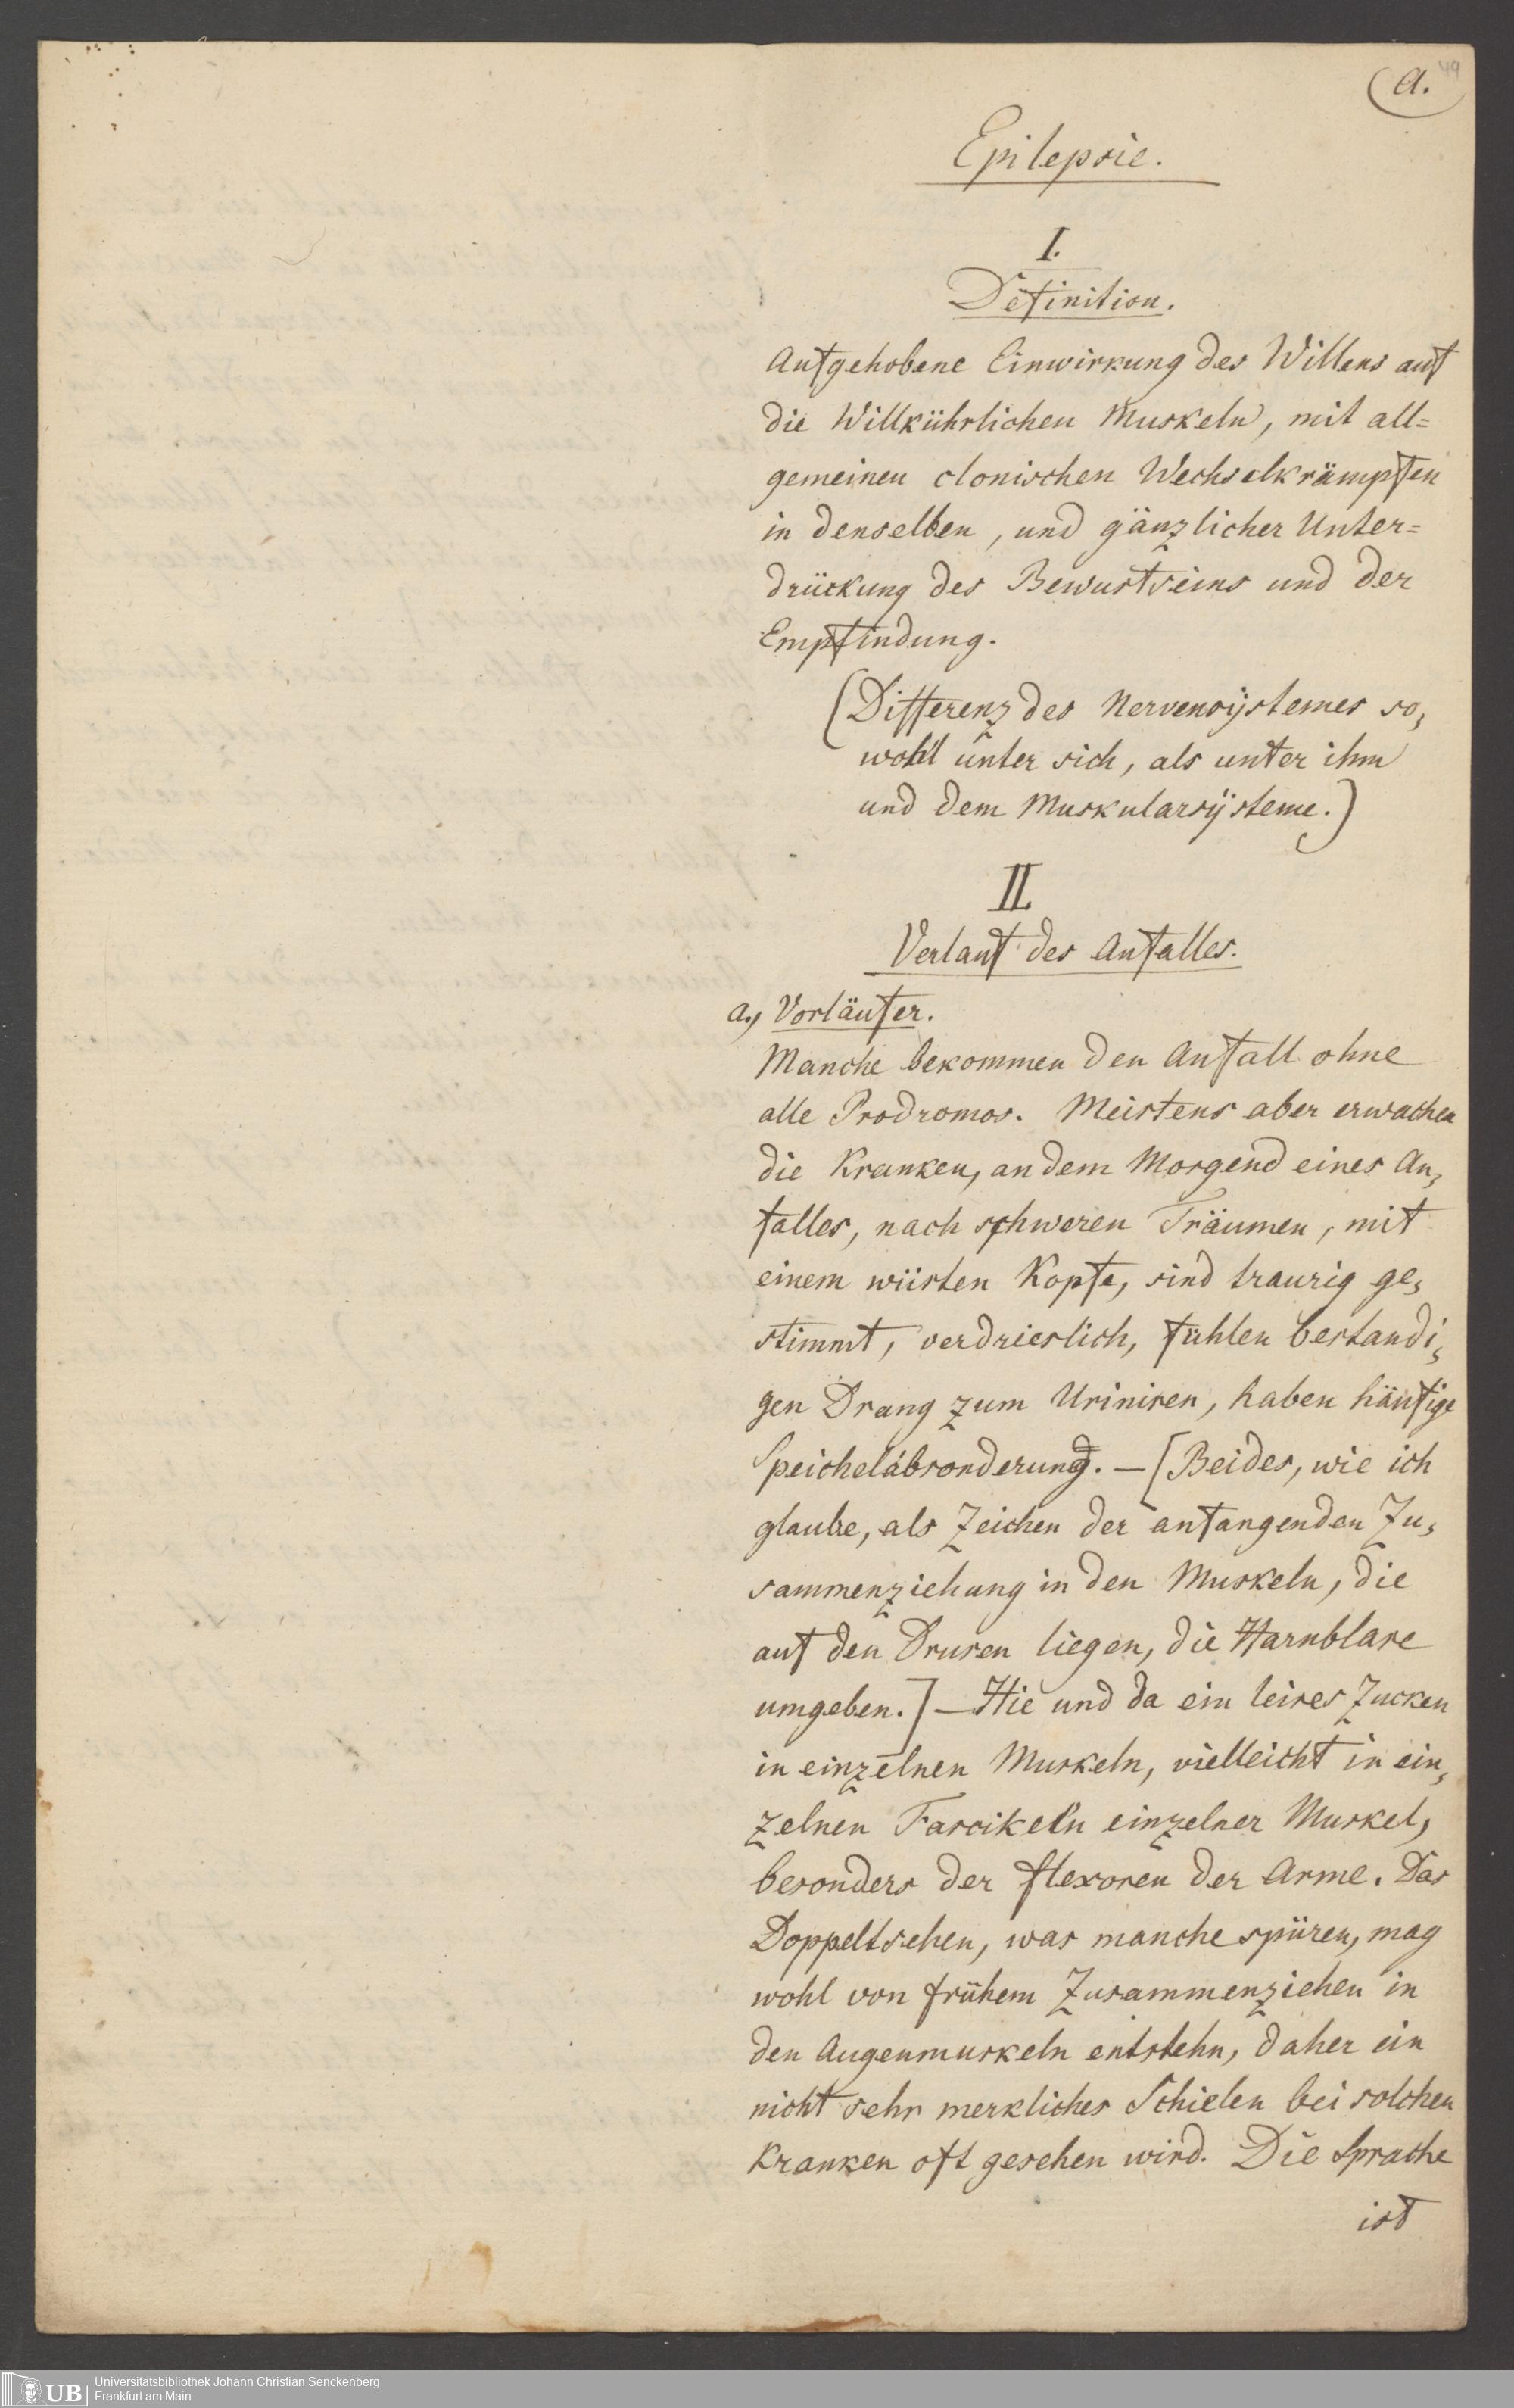 a. 49
Epilepsie.
I.
Definition.
Aufgehobene Einwirkung des Willens auf
die Willkührlichen Muskeln, mit all=
gemeinen clonischen Wechselkrämpfen
in denselben, und gänzlicher Unter=
drückung des Bewustseins und der
Empfindung.
(Differenz des Nervensÿstemes so,
wohl unter sich, als unter ihm
und dem Muskularsÿsteme.)
II.
Verlauf des Anfalles.
a., Vorläufer.
Manche bekommen den Anfall ohne
alle Prodromos. Meistens aber erwachen
die Kranken, an dem Morgend eines An,
falles, nach schweren Träumen, mit
einem wüsten Kopfe, sind traurig ge,
stimmt, verdrieslich, fühlen bestandi,
gen Drang zum Uriniren, haben häufige
Speichelabsonderung. — [Beides, wie ich
glaube, als Zeichen der anfangenden Zu,
sammenziehung in den Muskeln, die
auf den Drusen liegen, die Harnblase
umgeben.] — Hie und da ein leises Zucken
in einzelnen Muskeln, vielleicht in ein,
zelnen Fascikeln einzelner Muskel,
besonders der flexoren der Arme. Das
Doppeltsehen, was manche spüren, mag
wohl von frühem Zusammenziehen in
den Augenmuskeln entstehn, daher ein
nicht sehr merkliches Schielen bei solchen
Kranken oft gesehen wird. Die Sprache
ist
UB
Universitätsbibliothek Johann Christian Senckenberg
Frankfurt am Main